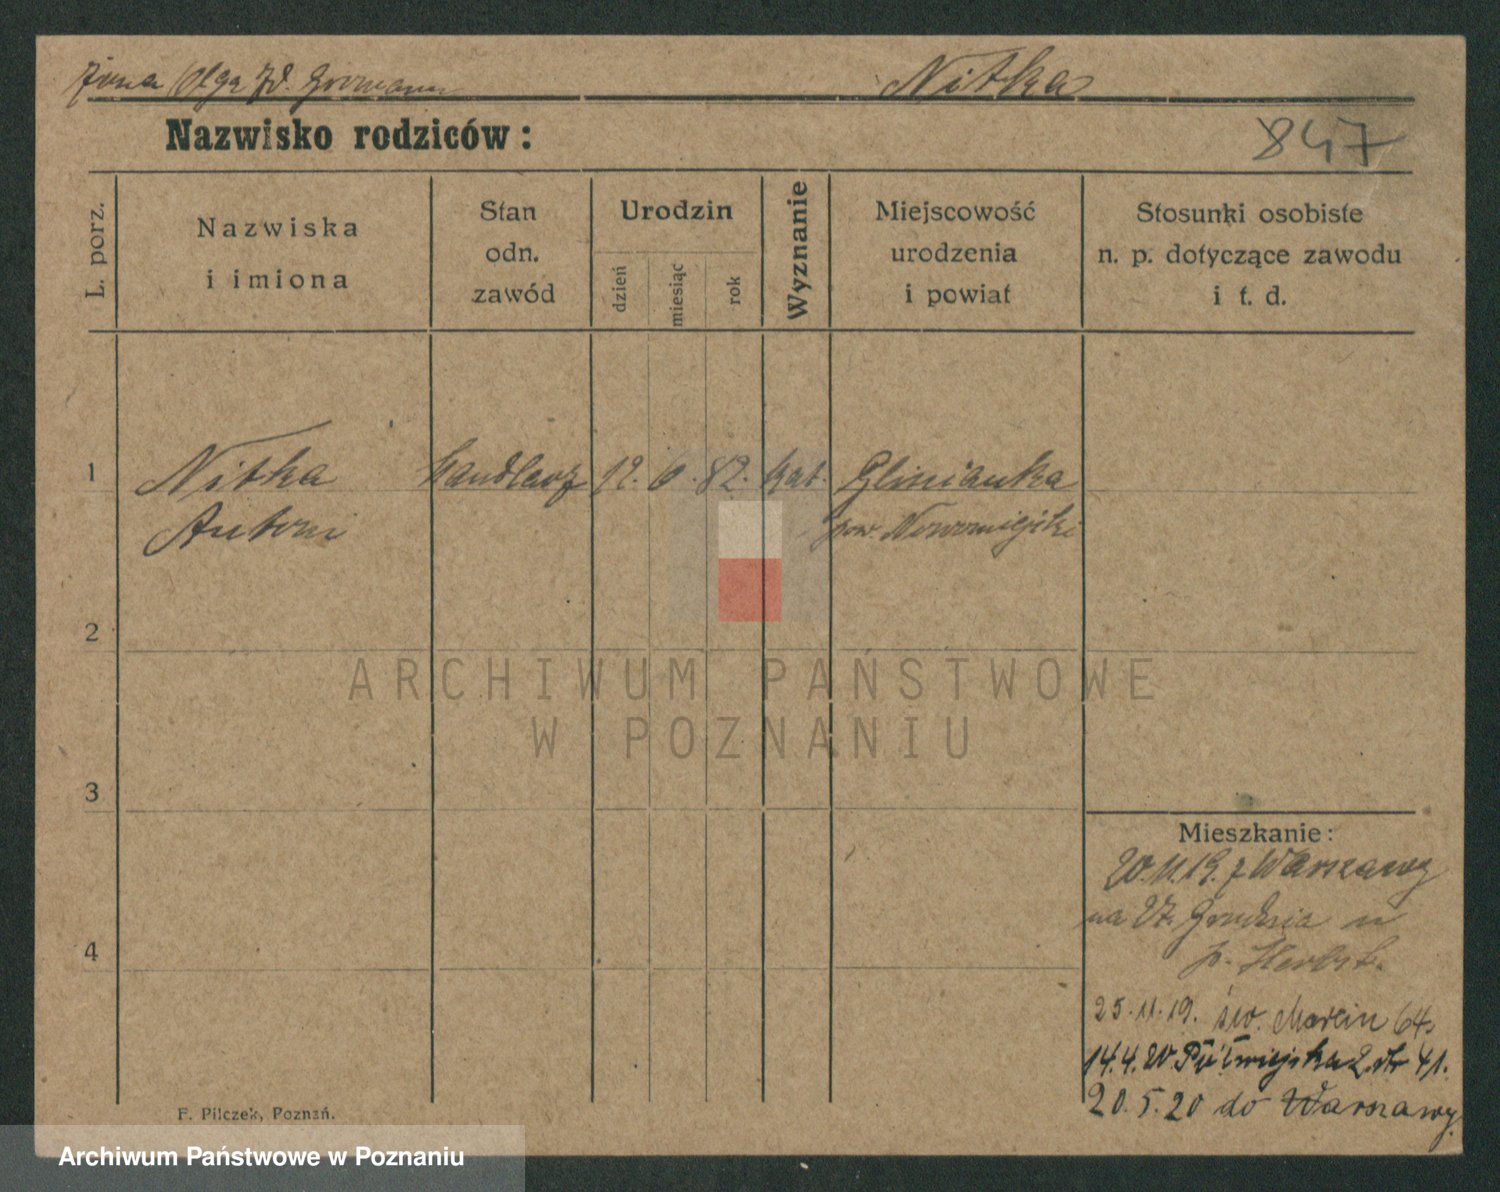 żona Olga Zd. Grozmann
Nitka
Nazwisko rodziców:
847
L. porz.
Nazwiska
i imiona
Stan
odn.
zawód
Urodzin
dzień
miesiąc
rok
Wyznanie
Miejscowość
urodzenia
i powiat
Stosunki osobiste
n. p. dotyczące zawodu
i t. d.
1
Nitka handlarz 12. 6. 82. kat. Glinianka
Antoni pow. Nowomiejski
2
ARCHIWUM PAŃSTWOWE
W POZNANIU
3
Mieszkanie:
20.11.19. z Warszawy
na 27. Grudnia u
p. Herbst.
4
25.11.19. św. Marcin 64
14.4.20 Półwiejska 41.
20.5.20 do Warszawy.
F. Pilczek, Poznań.
Archiwum Państwowe w Poznaniu